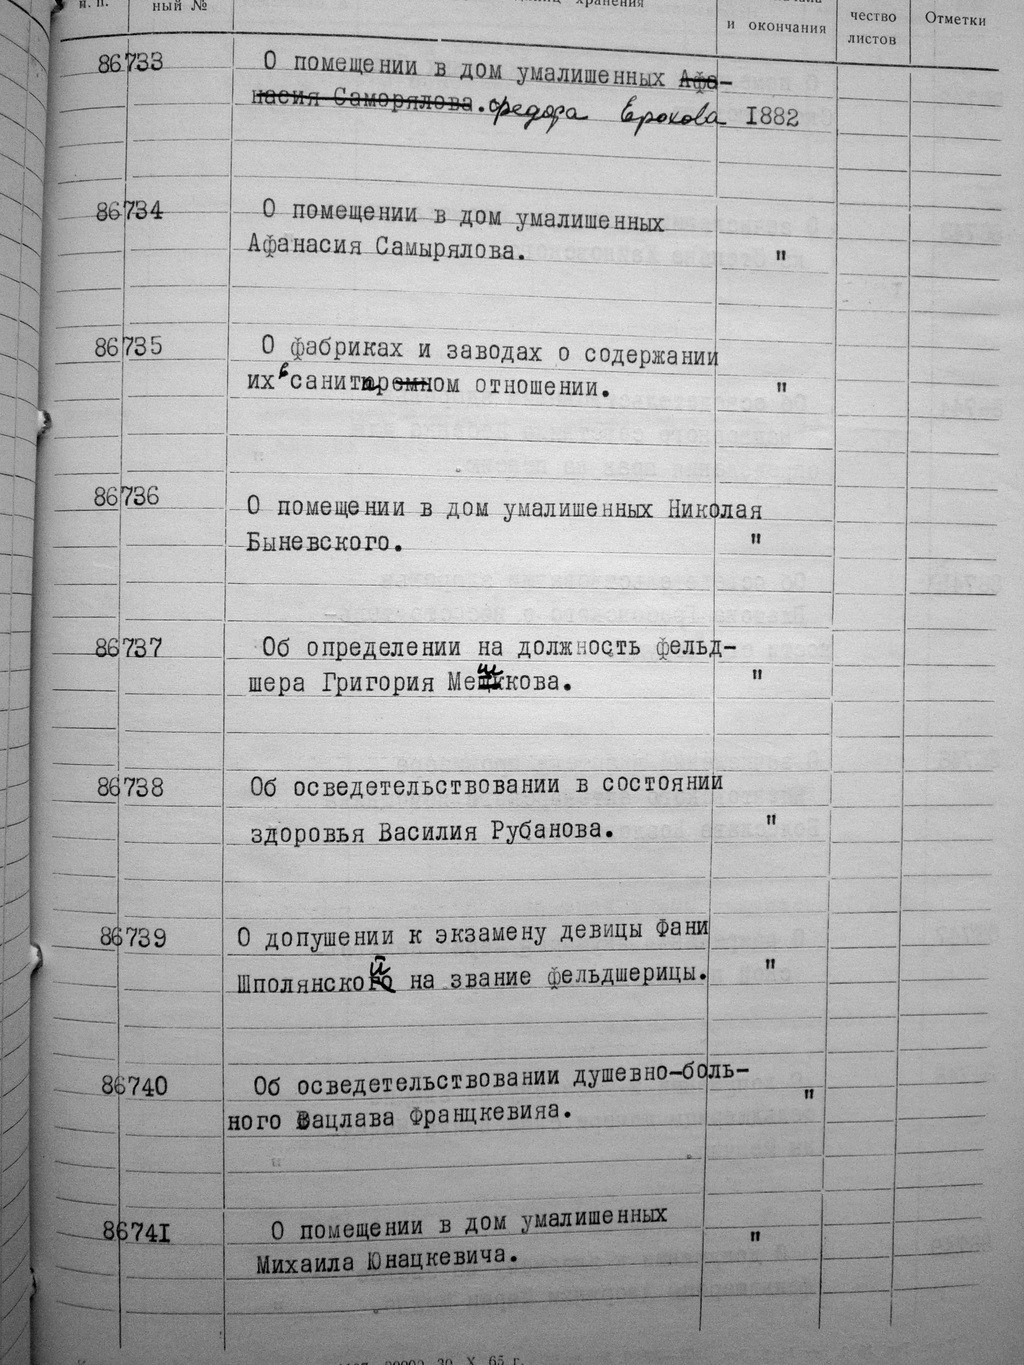 п. п. ный № хранения
и окончания
чество
листов
Отметки
86733 О помещении в дом умалишенных Афа-
насия Саморялова. Федора Ерохова 1882
86734 О помещении в дом умалишенных
Афанасия Самырялова. "
86735 О фабриках и заводах о содержании
их в санитарном отношении. "
86736 О помещении в дом умалишенных Николая
Быневского. "
86737 Об определении на должность фельд-
шера Григория Мешкова. "
86738 Об осведетельствовании в состоянии
здоровья Василия Рубанова. "
86739 О допушении к экзамену девицы Фани
Шполянской на звание фельдшерицы. "
86740 Об осведетельствовании душевно-боль-
ного Вацлава Францкевияа. "
86741 О помещении в дом умалишенных
Михаила Юнацкевича. "
30 X 65 г.